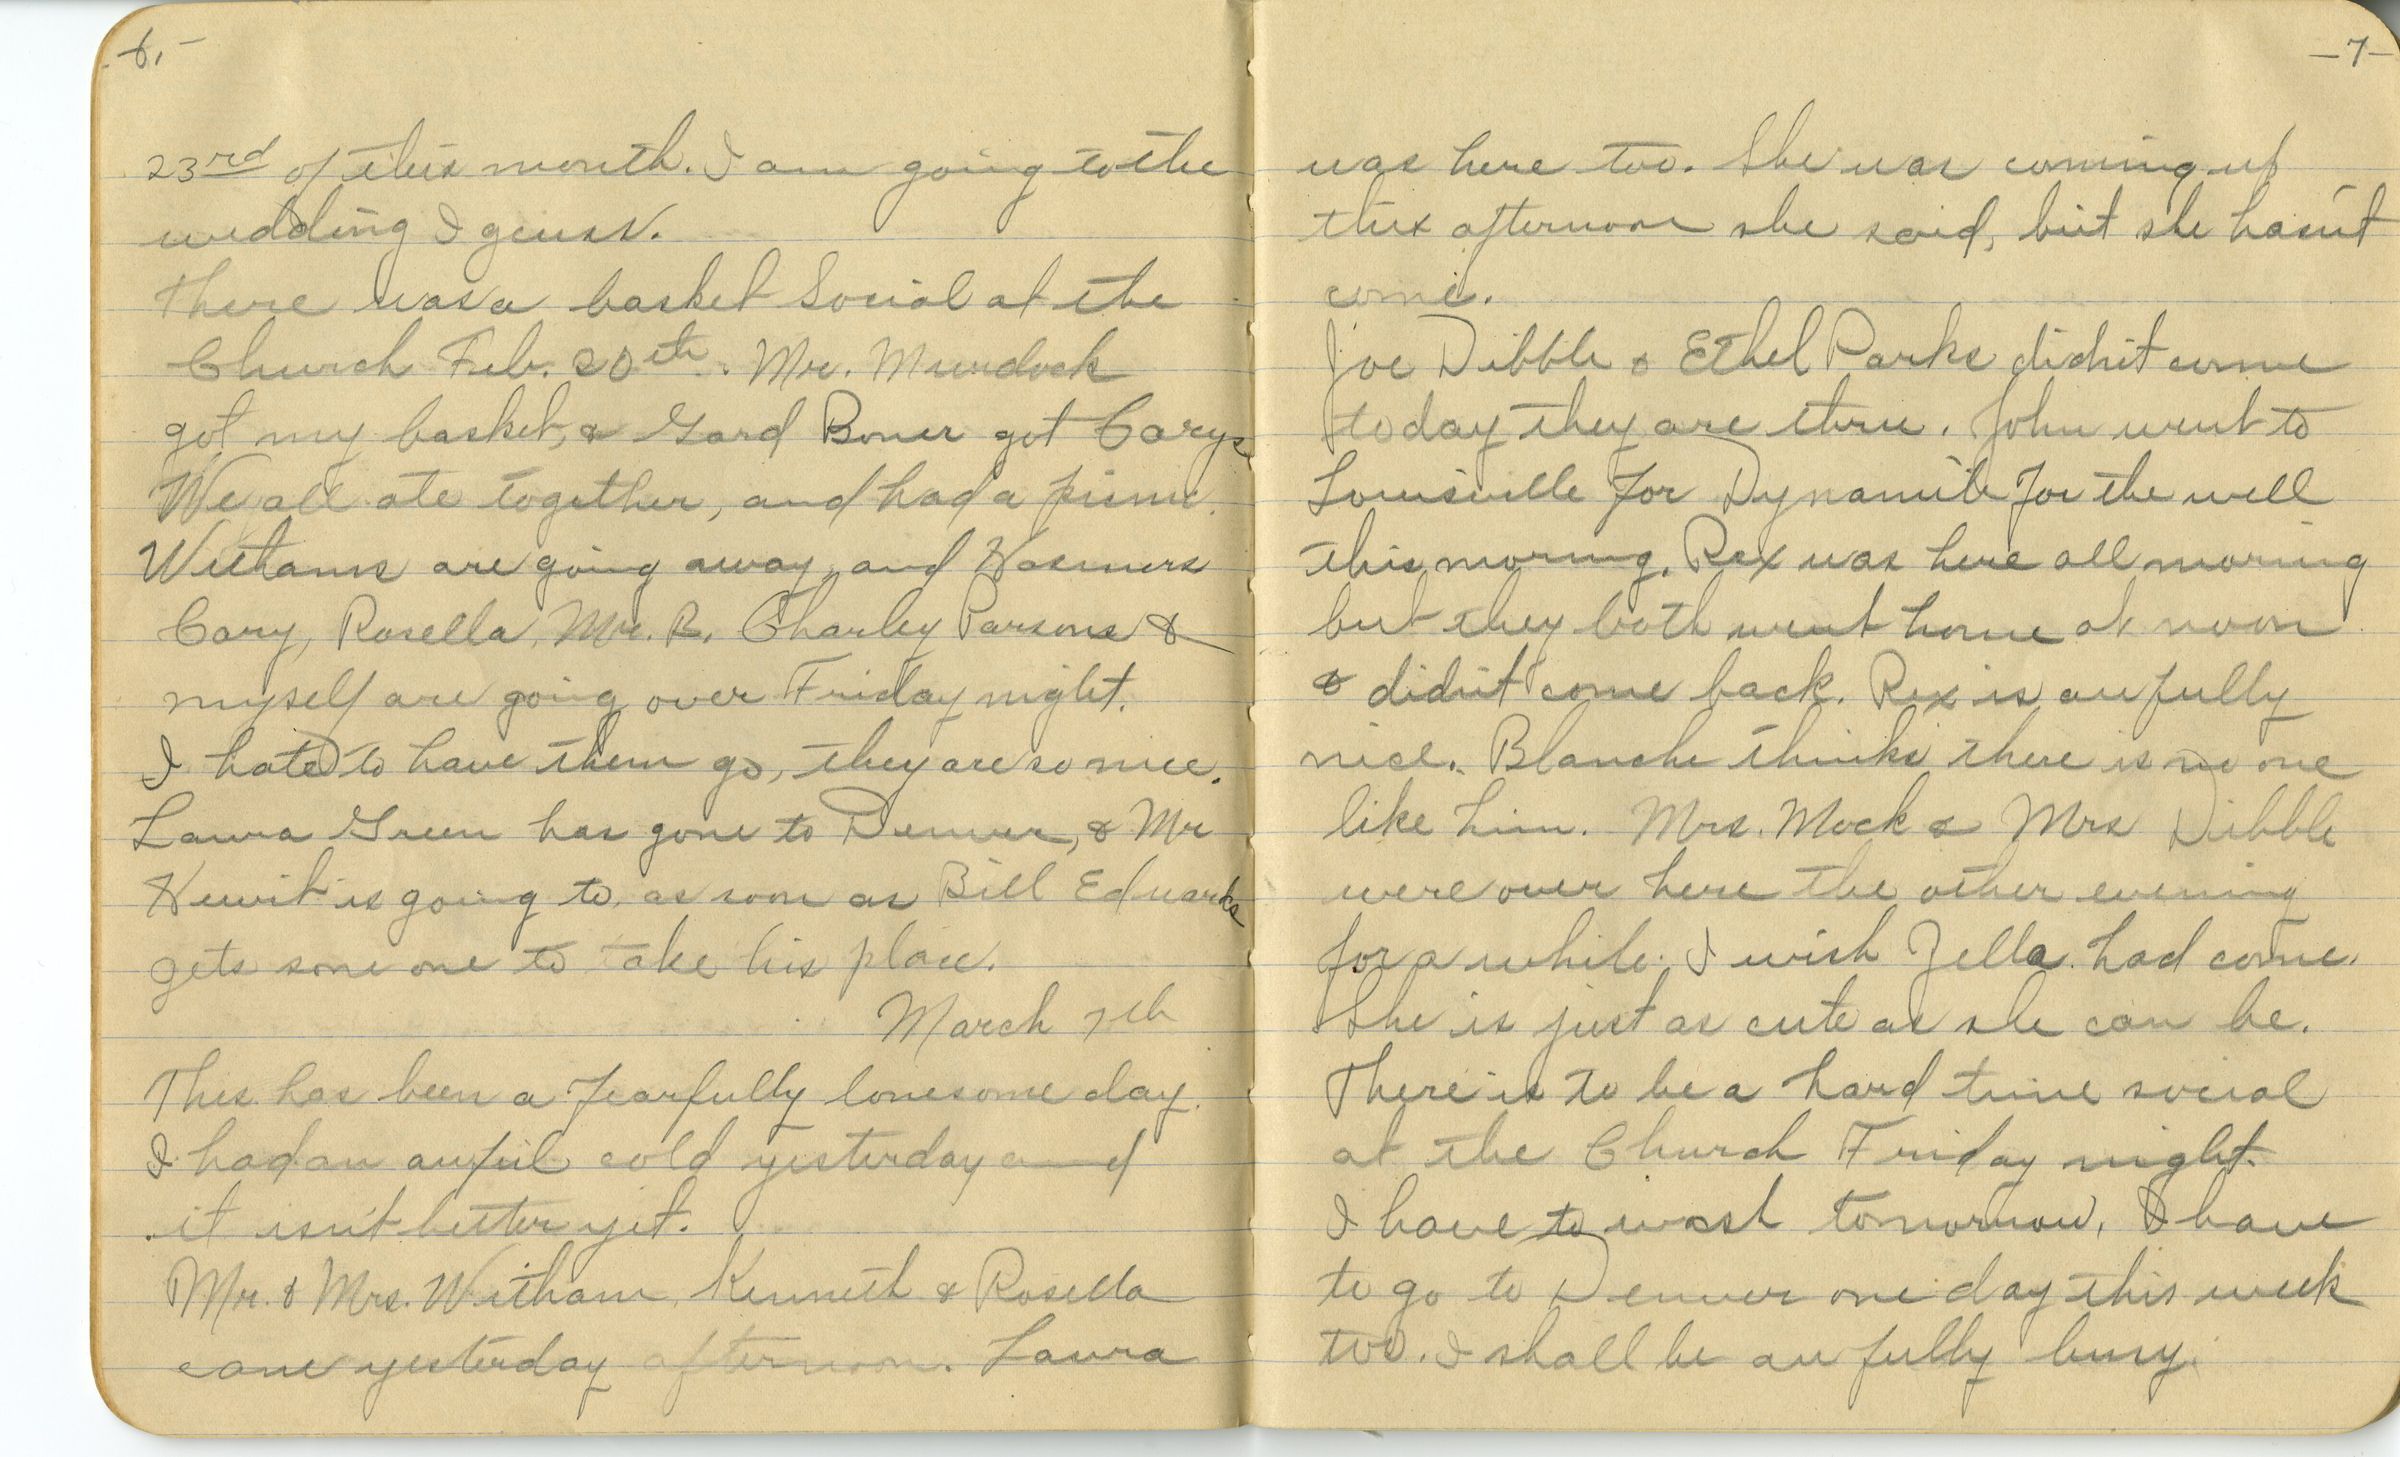 -6.-
23rd of this month. I am going to the
wedding I guess.
There was a basket Social at the
Church Feb. 20th. Mr. Murdock
got my basket, & Gard Boner got Carys
We all ate together, and had a
Withams are going away, and Hasmers
Cary, Rosella, Mr. B. Charley Parsons &
myself are going over Friday night.
I hate to have them go, they are so nice.
Laura Green has gone to Denver, & Mr
Hewit is going to, as soon as Bill Edwards
gets some one to take his place.
March 7th
This has been a fearfully lonesome day.
I had an awful cold yesterday and
it isn't better yet.
Mr. & Mrs. Witham, Kenneth & Rosella
came yesterday afternoon. Laura
-7-
was here too. She was coming up
this afternoon she said, but she hasn't
come.
Joe Dibble & Ethel Parks didn't come
today they are thru. John went to
Louisville for Dynamite for the well
this morning. Rex was here all morning
but they both went home at noon
& didn't come back. Rex is awfully
nice. Blanche thinks there is no one
like him. Mrs. Mock & Mrs Dibble
were over here the other evening
for a while. I wish Zella had come.
She is just as cute as she can be.
There is to be a hard time social
at the Church Friday night.
I have to wash tomorrow, I have
to go to Denver one day this week
too. I shall be awfully busy.